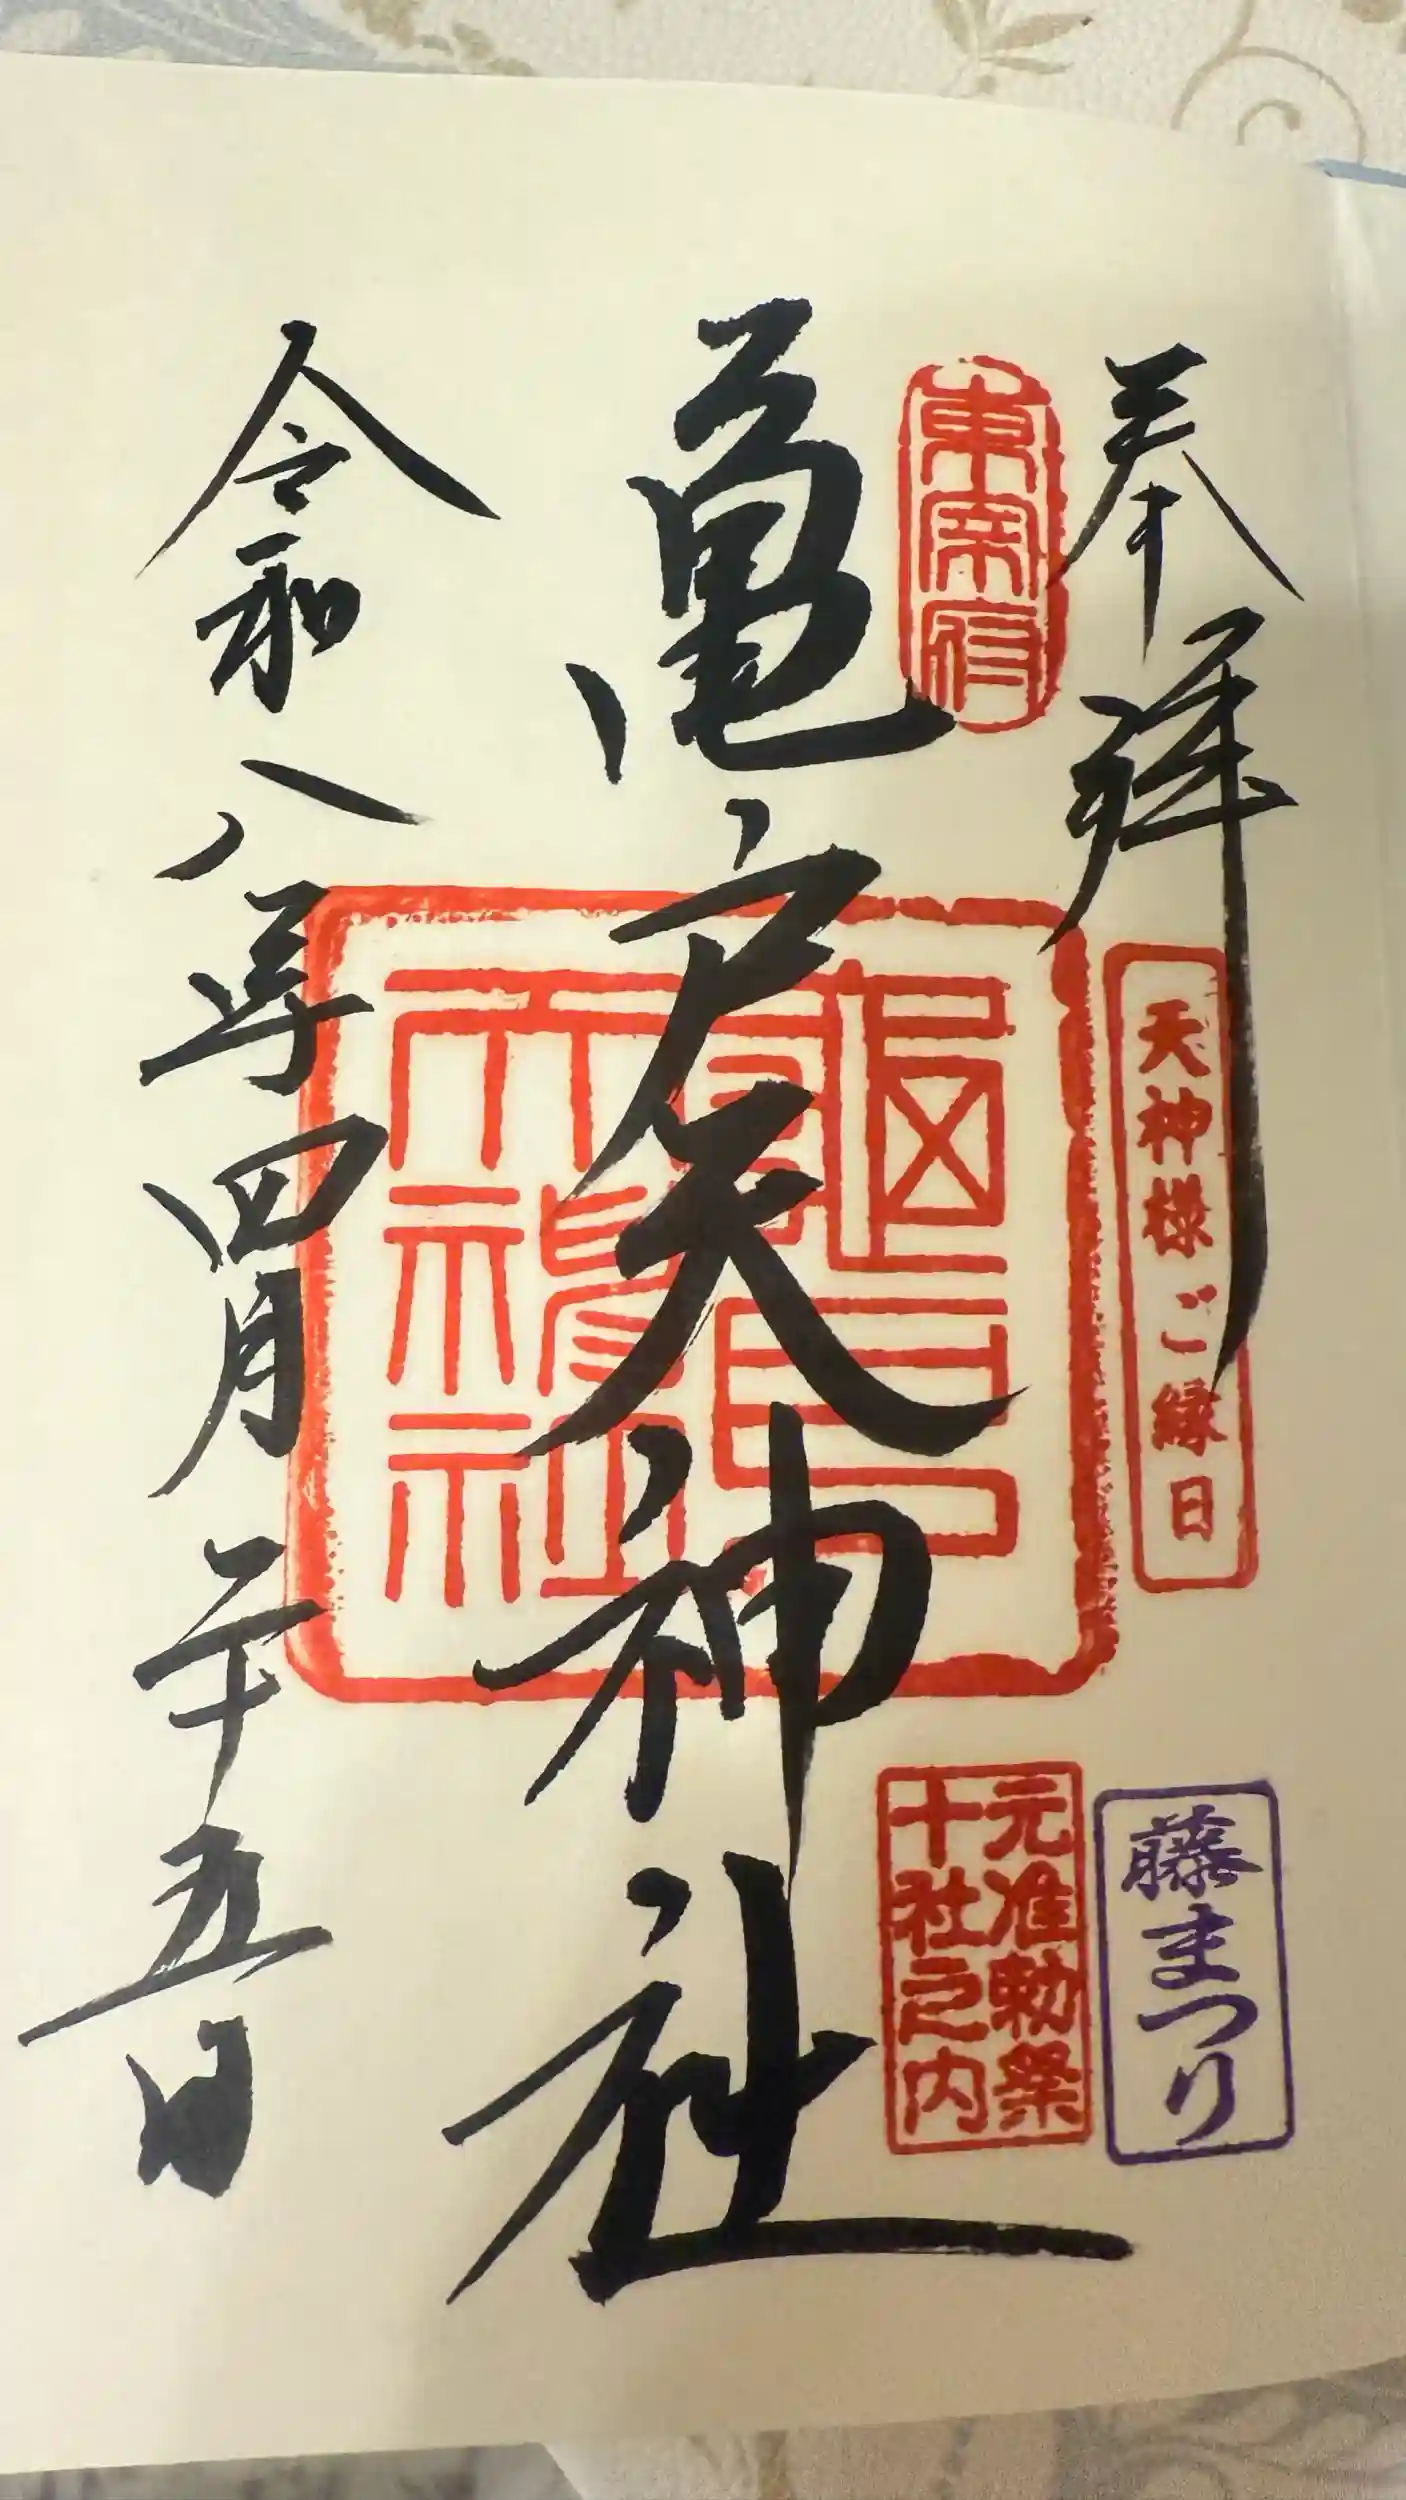 奉拝
天神様ご縁日
藤まつり
東宰府
元准勅祭
十社之内
亀戸天神社
令和八年四月二十五日